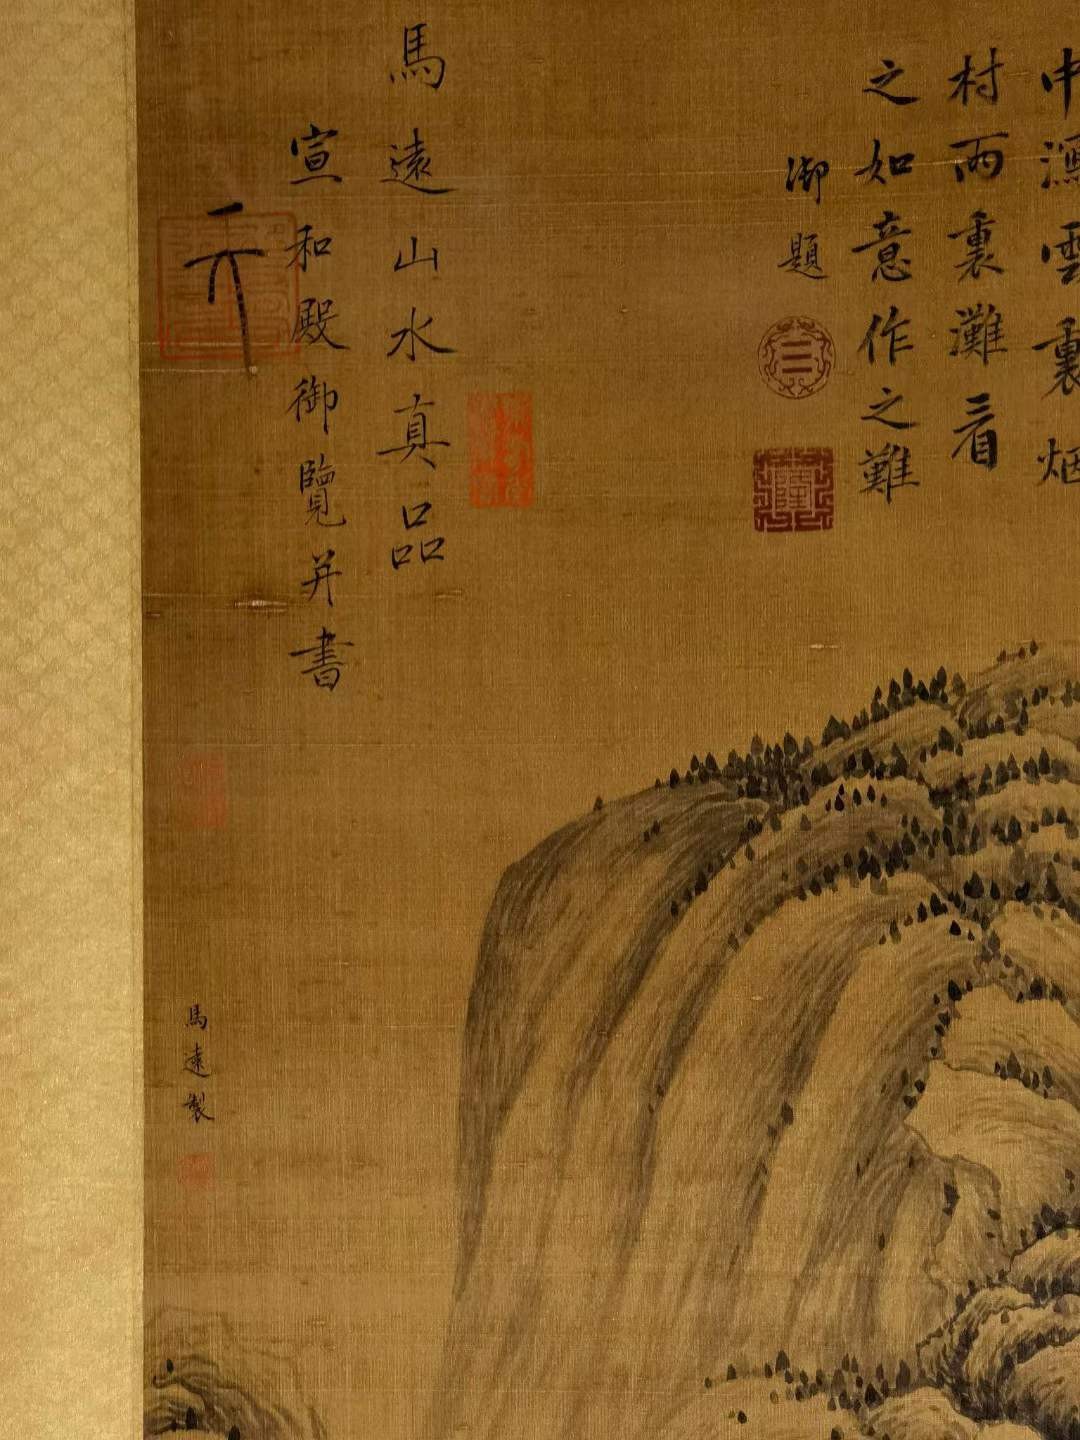 中瀑雲裏烟
村雨裏灘看
之如意作之難
御題
馬遠山水真品
宣和殿御覽并書
馬遠製